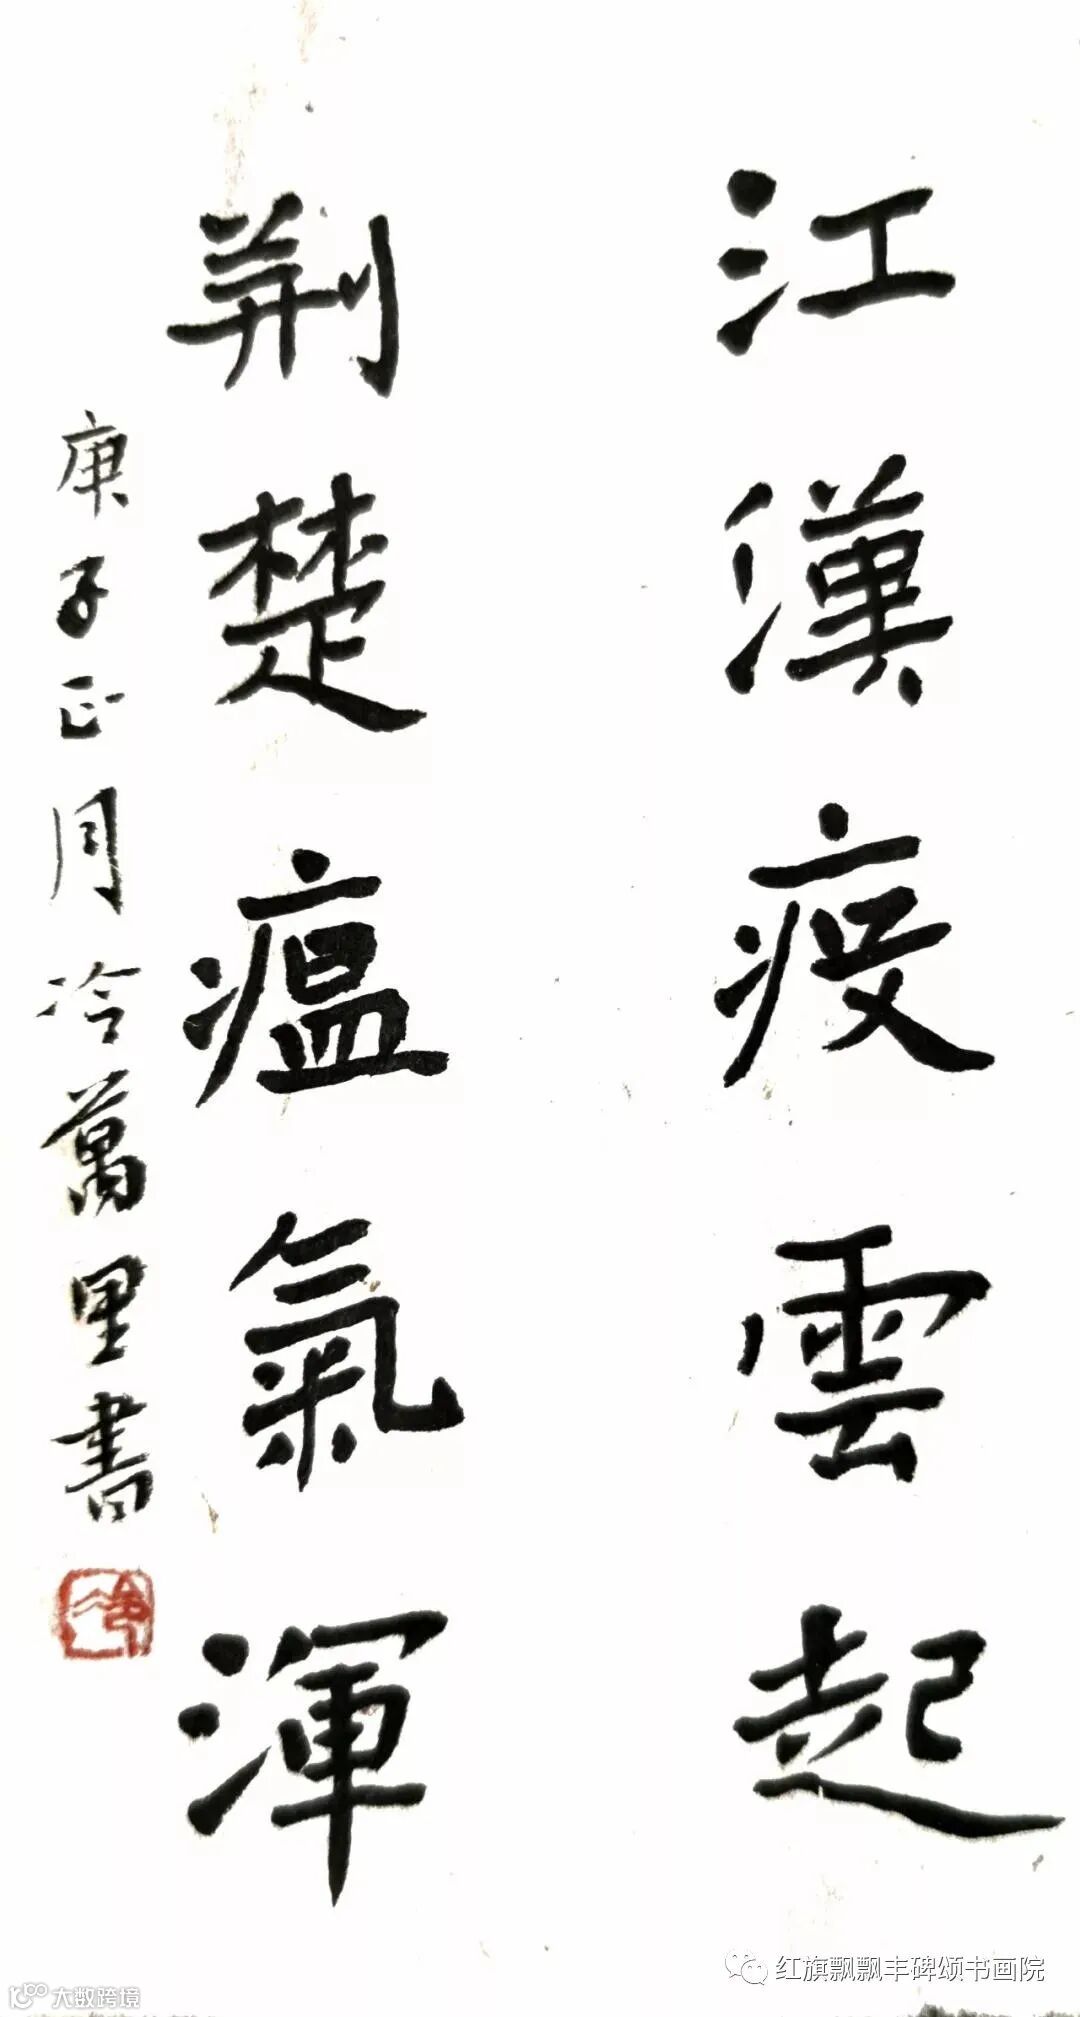 江漢疫雲起
荆楚瘟氣渾
庚子正月冷萬里書
红旗飘飘丰碑颂书画院
大数跨境